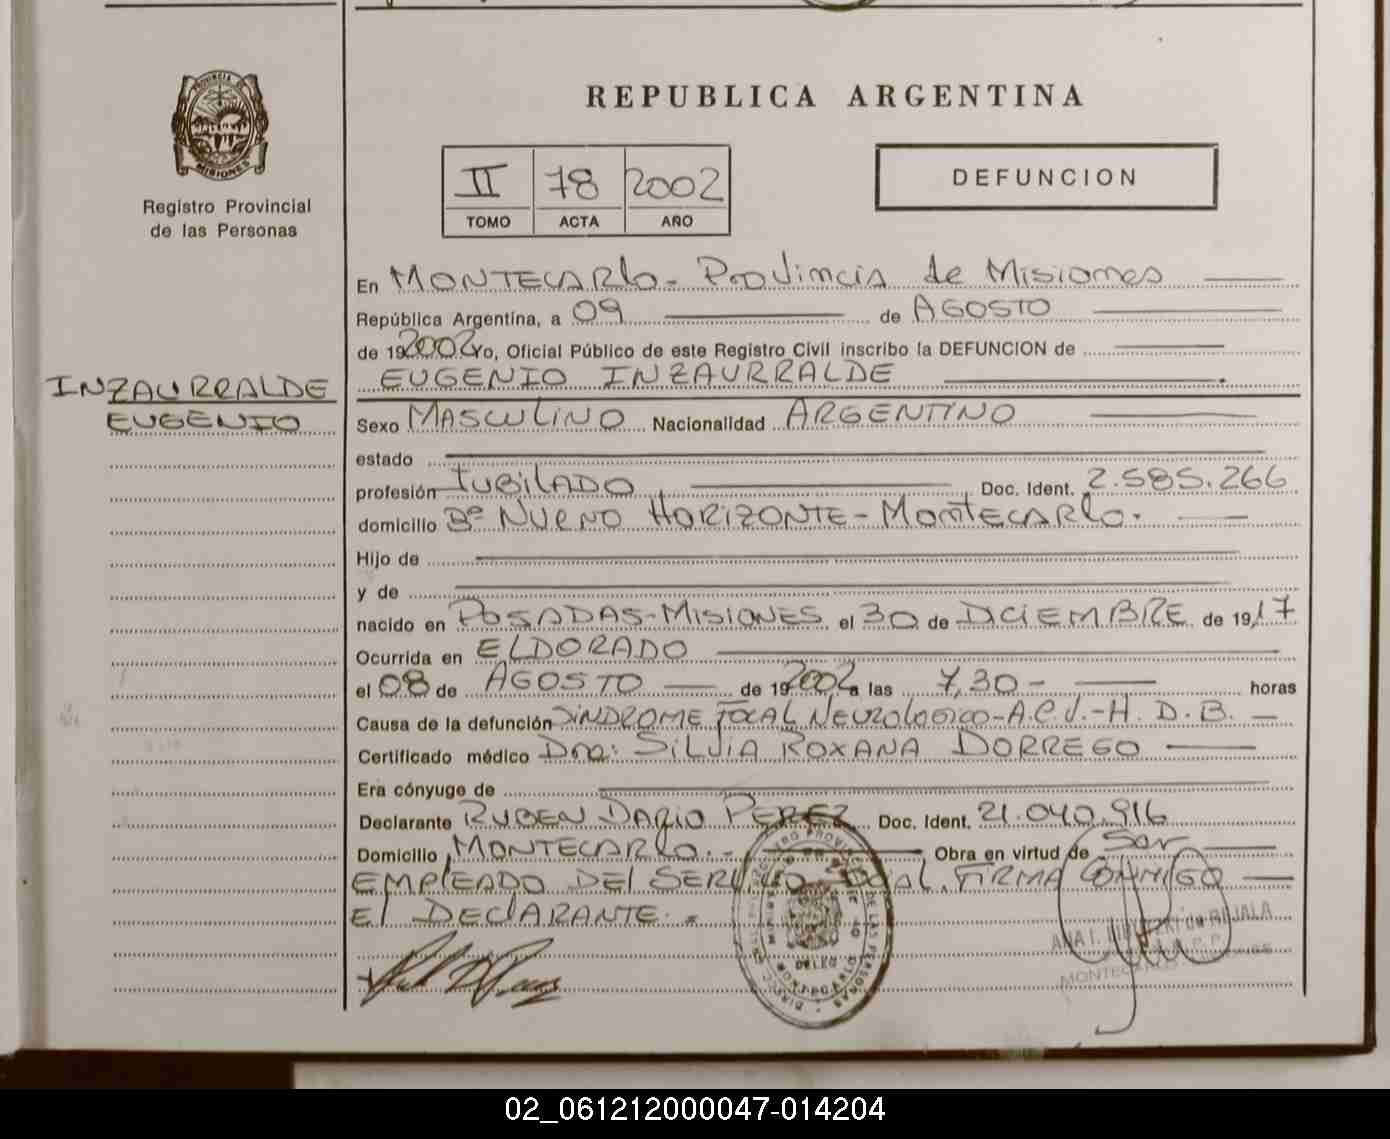 PROVINCIA DE
MISIONES
Registro Provincial
de las Personas
INZAURRALDE
EUGENIO
REPUBLICA ARGENTINA
II 78 2002
TOMO ACTA AÑO
DEFUNCION
En MONTECARlo - Provincia de Misiones
República Argentina, a 09 de AGOSTO
de 192002 Yo, Oficial Público de este Registro Civil inscribo la DEFUNCION de
EUGENIO INZAURRALDE
Sexo MASCULINO Nacionalidad ARGENTINO
estado
profesión JUBILADO Doc. Ident. 2.585.266
domicilio Bº NUEVO HORIZONTE - MONTECARlo.
Hijo de
y de
nacido en POSADAS - MISIONES el 30 de DICIEMBRE de 1917
Ocurrida en ELDORADO
el 08 de AGOSTO de 192002 a las 7,30 - horas
Causa de la defunción SINDROME FOCAL NEUROLOGICO - A.C.V. - H.D.B.
Certificado médico Dra: SILVIA ROXANA DORREGO
Era cónyuge de
Declarante RUBEN DARIO PEREZ Doc. Ident. 21.040.916
Domicilio MONTECARLO. - Obra en virtud de Ser
EMPLEADO DEl SERVICIO SOCIAL. FIRMA CONMIGO
El DEClARANTE. =
ANA I. de REJALA
MONTECARLO
02_061212000047-014204